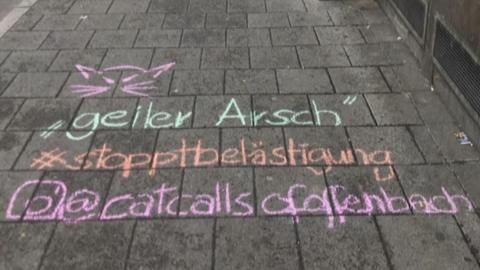 „geiler Arsch”
#stopptbelästigung
@catcallsofoffenbach